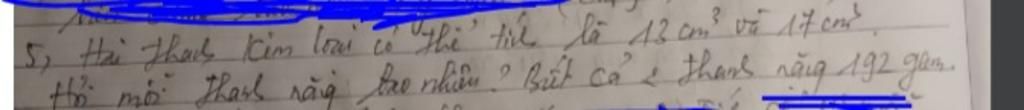 5, Hai thanh kim loại có thể tích là 13 cm³ và 17 cm³.
Hỏi mỗi thanh nặng bao nhiêu? Biết cả 2 thanh nặng 192 gam.